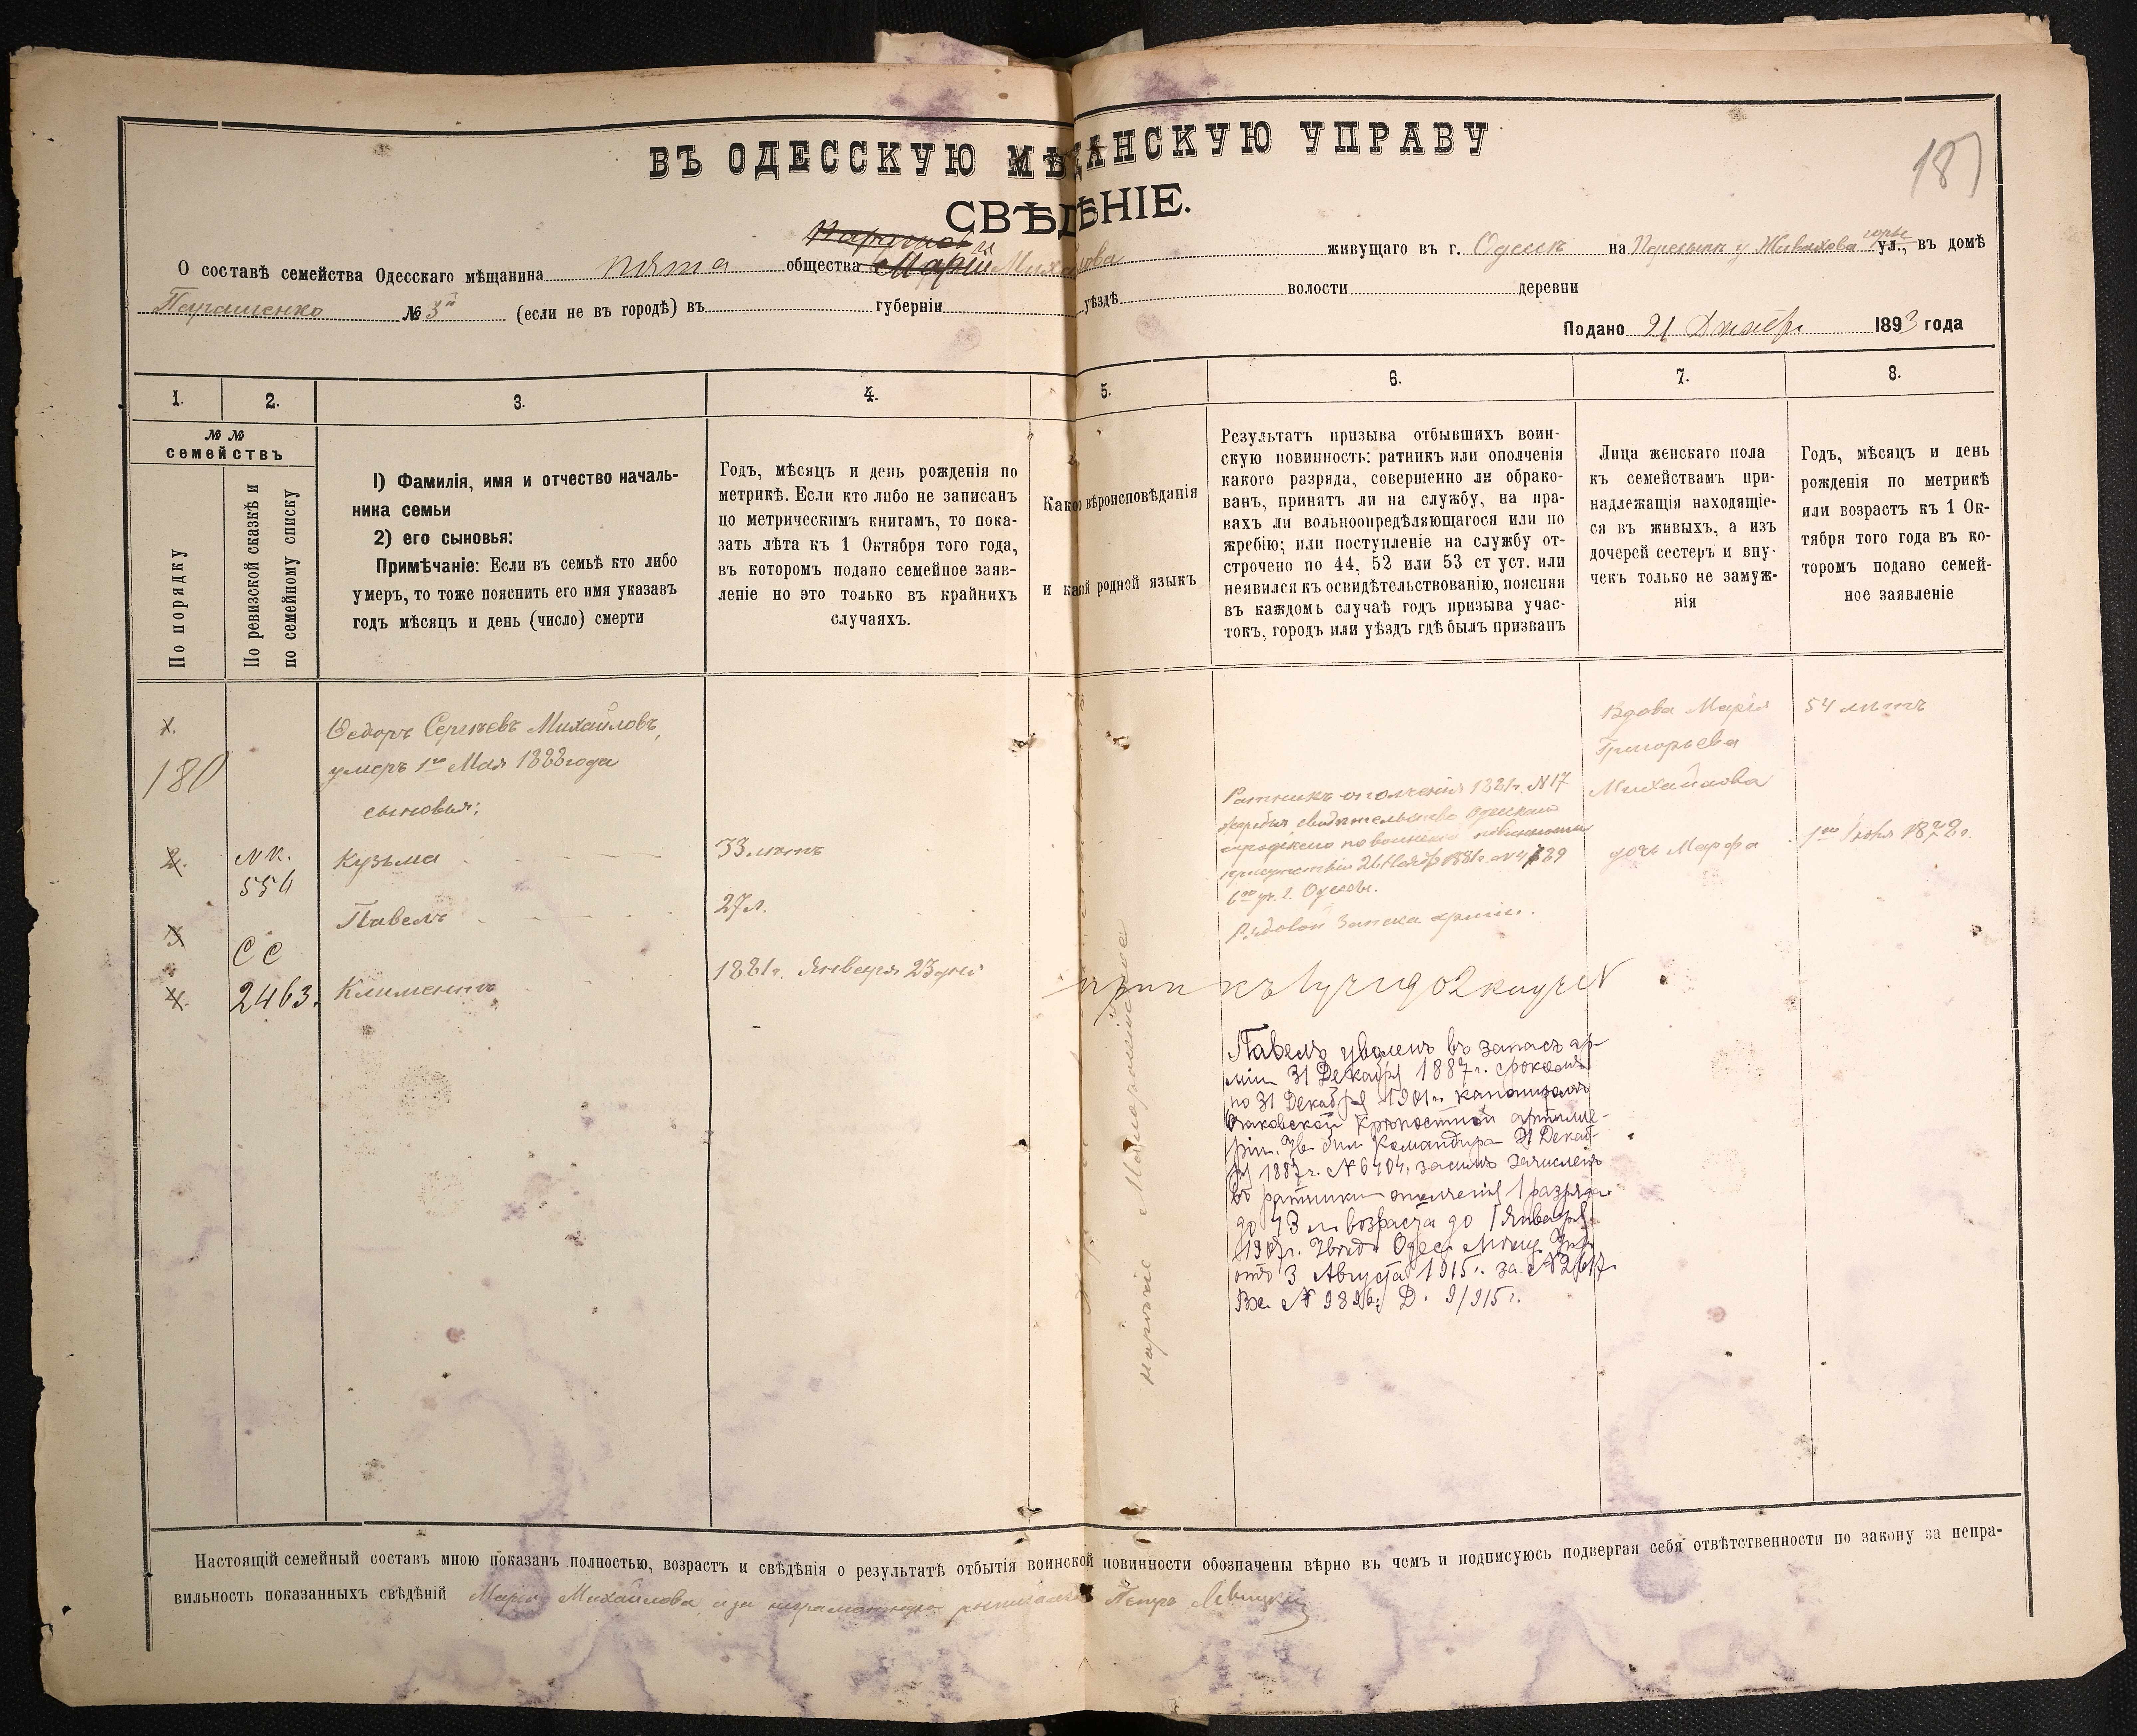 187
ВЪ ОДЕССКУЮ МѢЩАНСКУЮ УПРАВУ
СВѢДѢНІЕ.
О составѣ семейства Одесскаго мѣщанина пята общества Маріи Михайлова живущаго въ г. Одессѣ на Пересыпи у Живахова горы ул., въ домѣ
Парашенко № 3й (если не въ городѣ) въ губерніи уѣздѣ волости деревни
Подано 21 Декабр 1893 года
1. 2. 3. 4. 5. 6. 7. 8.
№ № семействъ
По порядку
По ревизской сказкѣ и по семейному списку
1) Фамилія, имя и отчество началь-
ника семьи
2) его сыновья:
Примѣчаніе: Если въ семьѣ кто либо
умеръ, то тоже пояснить его имя указавъ
годъ мѣсяцъ и день (число) смерти
Годъ, мѣсяцъ и день рожденія по
метрикѣ. Если кто либо не записанъ
по метрическимъ книгамъ, то пока-
зать лѣта къ 1 Октября того года,
въ которомъ подано семейное заяв-
леніе но это только въ крайнихъ
случаяхъ.
Какого вѣроисповѣданія
и какой родной языкъ
Результатъ призыва отбывшихъ воин-
скую повинность: ратникъ или ополченія
какого разряда, совершенно ли обрако-
ванъ, принятъ ли на службу, на пра-
вахъ ли вольноопредѣляющагося или по
жребію; или поступленіе на службу от-
строчено по 44, 52 или 53 ст уст. или
неявился къ освидѣтельствованію, поясняя
въ каждомъ случаѣ годъ призыва учас-
токъ, городъ или уѣздъ гдѣ былъ призванъ
Лица женскаго пола
къ семействамъ при-
надлежащія находящіе-
ся въ живыхъ, а изъ
дочерей сестеръ и вну-
чекъ только не замуж-
нія
Годъ, мѣсяцъ и день
рожденія по метрикѣ
или возрастъ къ 1 Ок-
тября того года въ ко-
торомъ подано семей-
ное заявленіе
1. Ѳедоръ Сергѣевъ Михайловъ,
180 умеръ 1го Мая 1888 года
сыновья:
2. N К. 554 Кузьма 33 лѣтъ
3 Павелъ 27 л.
СС
4. 2463. Климентъ 1881г. Января 23 дня
Ратникъ ополченія 1881г. N 17
жребія свидѣтельство Одесскаго
городского по воинской повинности
присутствія 26 Ноябр 1881г.
6го уч. г. Одессы.
Рядовой Запаса арміи.
Вдова Марія 54 лѣтъ
Григорьева
Михайлова
дочь Марфа 1го 1872г.
Павелъ уволенъ въ запасъ ар-
міи 31 Декабря 1887г. срокомъ
по 31 Декабря 1901г.
Очаковской Крѣпостной артилле-
ріи. Командира 31 Декаб-
ря 1887г. № 6404, засимъ зачисленъ
въ ратники ополченія 1 разряда
до 43 л. возраста до 1 Января
1907г. Одес. Мѣщ. Упр.
отъ 3 Августа 1915г. за № 2617
Вх. № 9896. Д. 9/915г.
нарѣчіе Малороссійское
Настоящій семейный составъ мною показанъ полностью, возрастъ и свѣдѣнія о результатѣ отбытія воинской повинности обозначены вѣрно въ чемъ и подписуюсь подвергая себя отвѣтственности по закону за непра-
вильность показанныхъ свѣдѣній Марія Михайлова, а за неграмотную росписался Петръ Левицкій